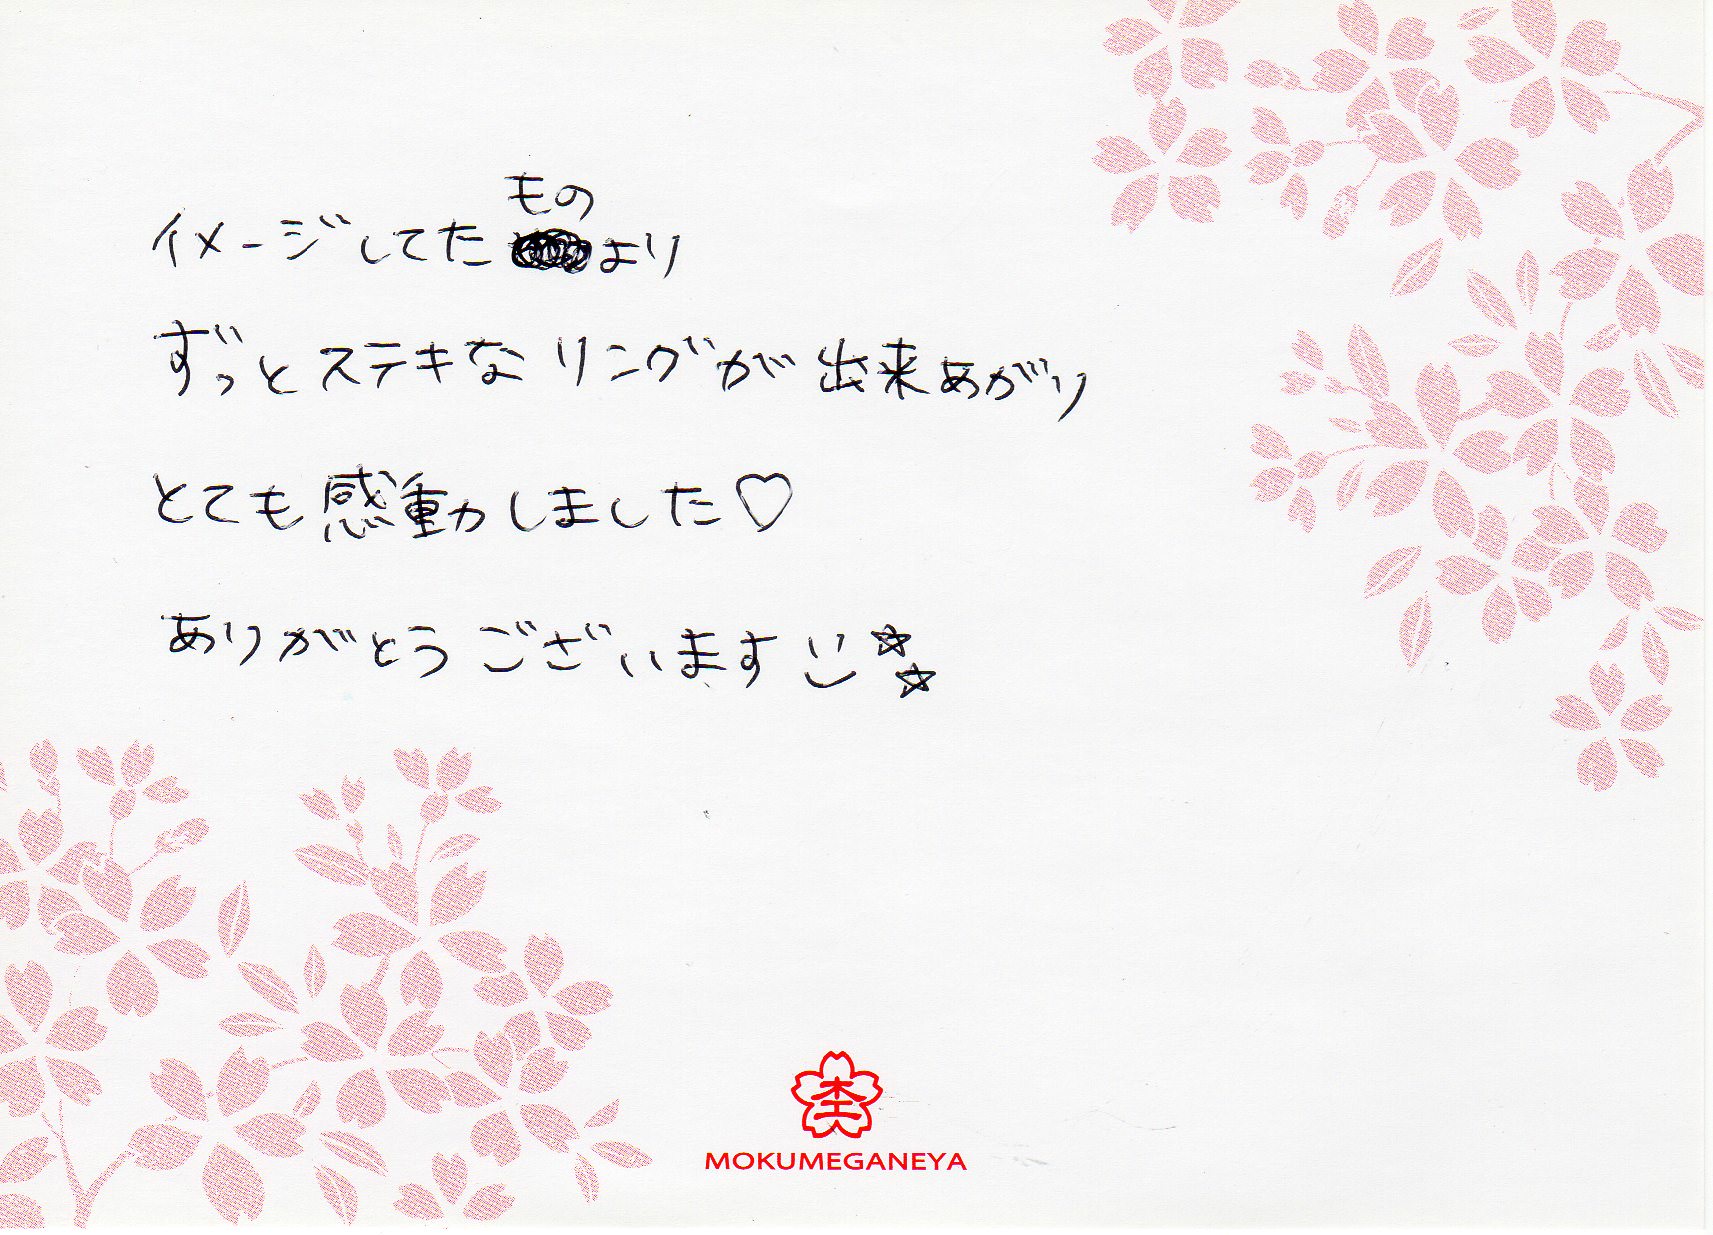 イメージしてたものより
ずっとステキなリングが出来あがり
とても感動しました♡
ありがとうございます☆☆
MOKUMEGANEYA